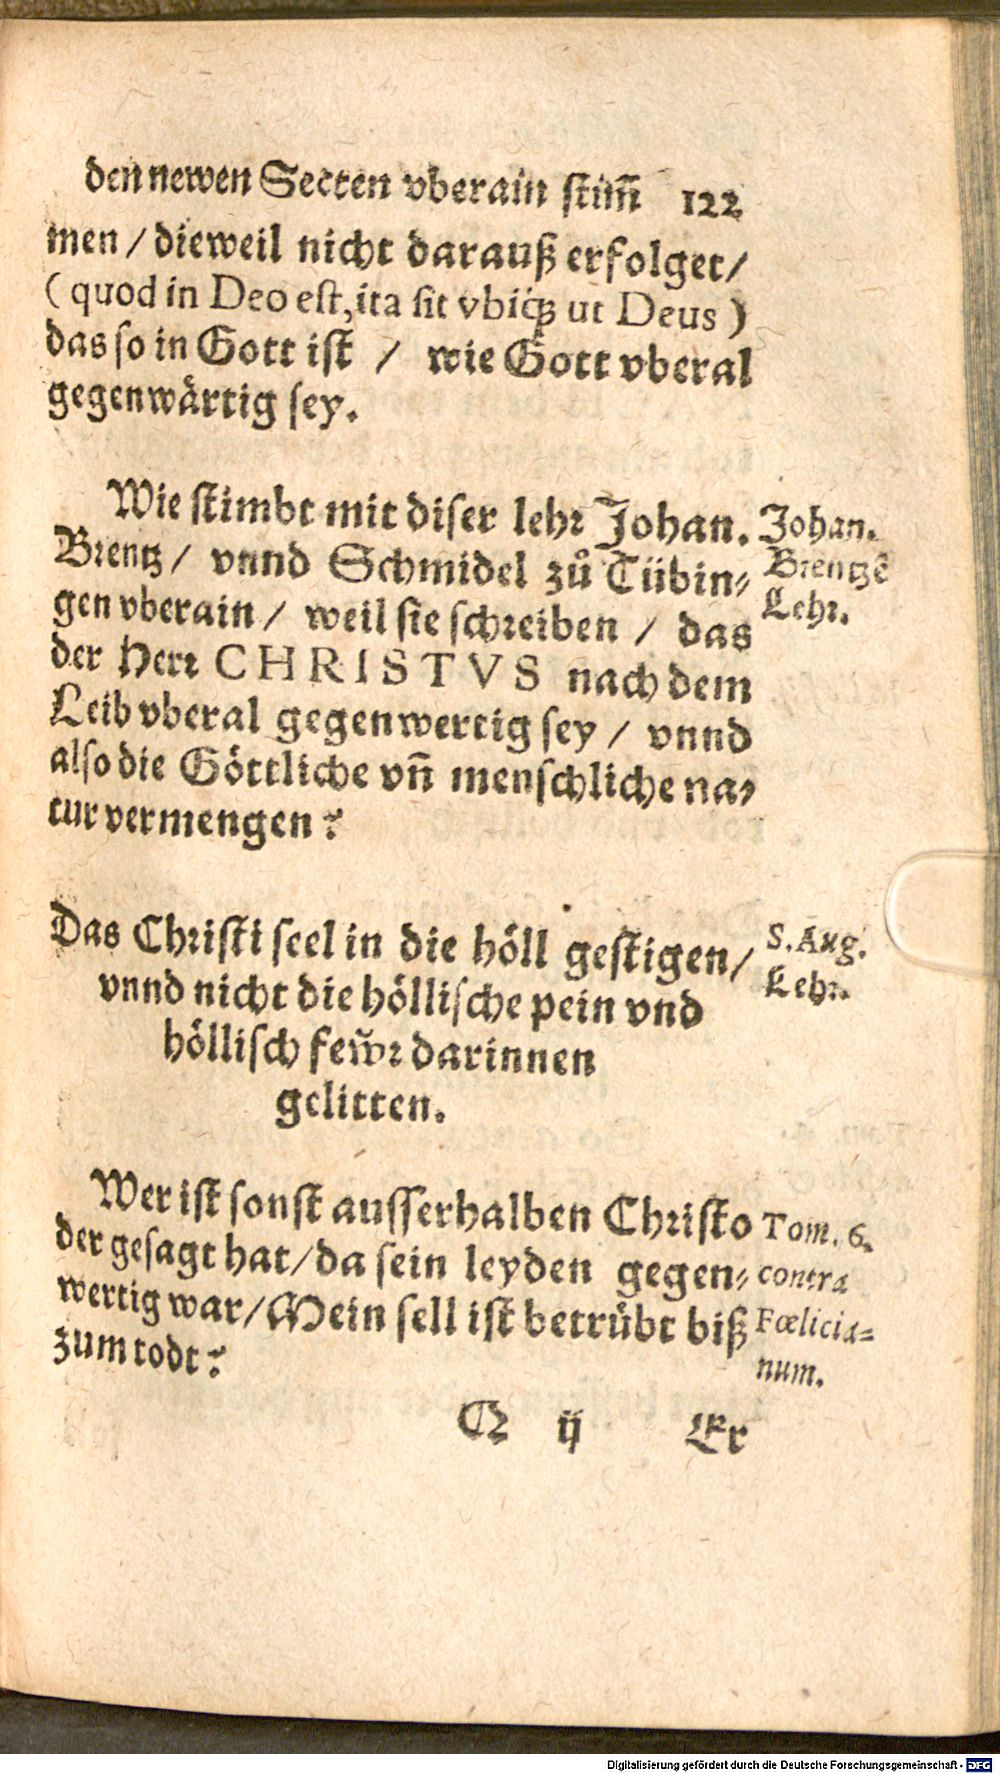 den newen Secten vberain stim̃ 122
men / dieweil nicht darauß erfolget /
( quod in Deo est, ita sit vbiq́ꝫ ut Deus )
das so in Gott ist / wie Gott vberal
gegenwärtig sey.
Wie stimbt mit diser lehr Johan.
Brentz / vnnd Schmidel zů Tübin⸗
gen vberain / weil sie schreiben / das
der Herr CHRISTVS nach dem
Leib vberal gegenwertig sey / vnnd
also die Göttliche vñ menschliche na⸗
tur vermengen?
Johan.
Brentzẽ
Lehr.
Das Christi seel in die höll gestigen /
vnnd nicht die höllische pein vnd
höllisch fewr darinnen
gelitten.
S. Aug.
Lehr.
Wer ist sonst ausserhalben Christo
der gesagt hat / da sein leyden gegen⸗
wertig war / Mein sell ist betrübt biß
zum todt?
Tom. 6.
contra
Fœlicia⸗
num.
Q ij Er
Digitalisierung gefördert durch die Deutsche Forschungsgemeinschaft - DFG